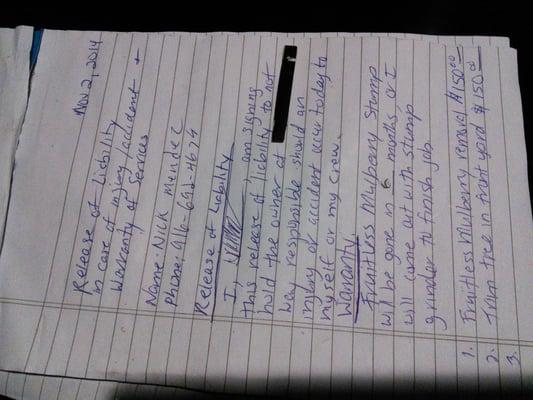 Nov 2, 2014
Release of Liability
in case of injury/accident +
Warranty of Services
Name: Nick Mendez
Phone: 916-692-4674
Release of Liability
I, am signing
this release of liability to not
hold the owner of
Way responsible should an
injury or accident occur today to
myself or my crew.
Warranty
Fruitless Mulberry Stump
will be gone in 6 months or I
will come out with stump
grinder to finish job
1. Fruitless Mulberry removal $150.00
2. Trim tree in front yard $150.00
3.